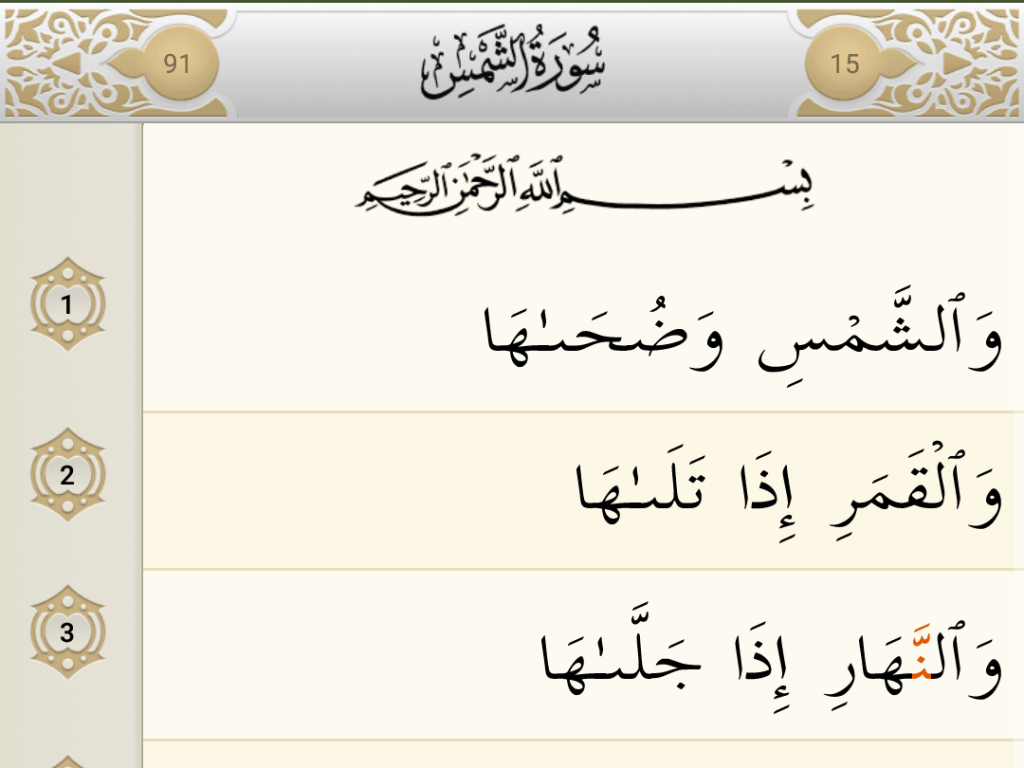 91 سُورَةُ الشَّمْسِ 15
بِسْمِ ٱللَّهِ ٱلرَّحْمَٰنِ ٱلرَّحِيمِ
1 وَٱلشَّمْسِ وَضُحَىٰهَا
2 وَٱلْقَمَرِ إِذَا تَلَىٰهَا
3 وَٱلنَّهَارِ إِذَا جَلَّىٰهَا